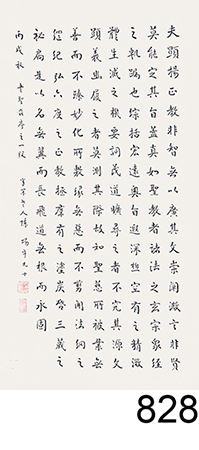 夫顯揚正教非智無以廣其文崇闡微言非賢
莫能定其旨蓋真如聖教者諸法之玄宗眾經
之軌躅也綜括宏遠奧旨遐深極空有之精微
體生滅之機要詞茂道曠尋之者不究其源文
顯義幽履之者莫測其際故知聖慈所被業無
善而不臻妙化所敷緣無惡而不剪開法網之
綱紀弘六度之正教拯群有之塗炭啟三藏之
秘扃是以名無翼而長飛道無根而永固
丙戌秋 聖教序之一段
828